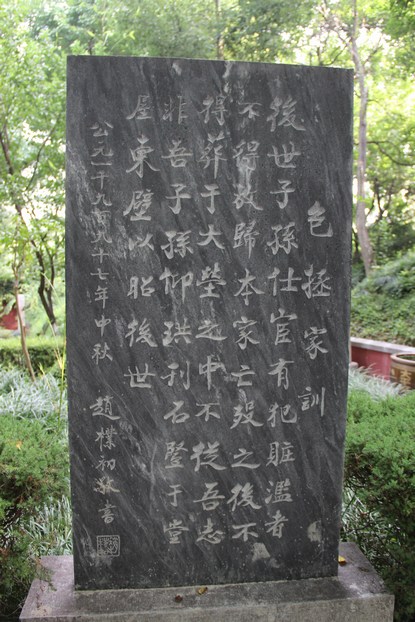 包拯家训
後世子孫仕宦有犯賍濫者
不得放歸本家亡殁之後不
得葬于大塋之中不從吾志
非吾子孫仰珙刊石竪于堂
屋東壁以昭後世
公元一千九百九十七年中秋
趙樸初敬書